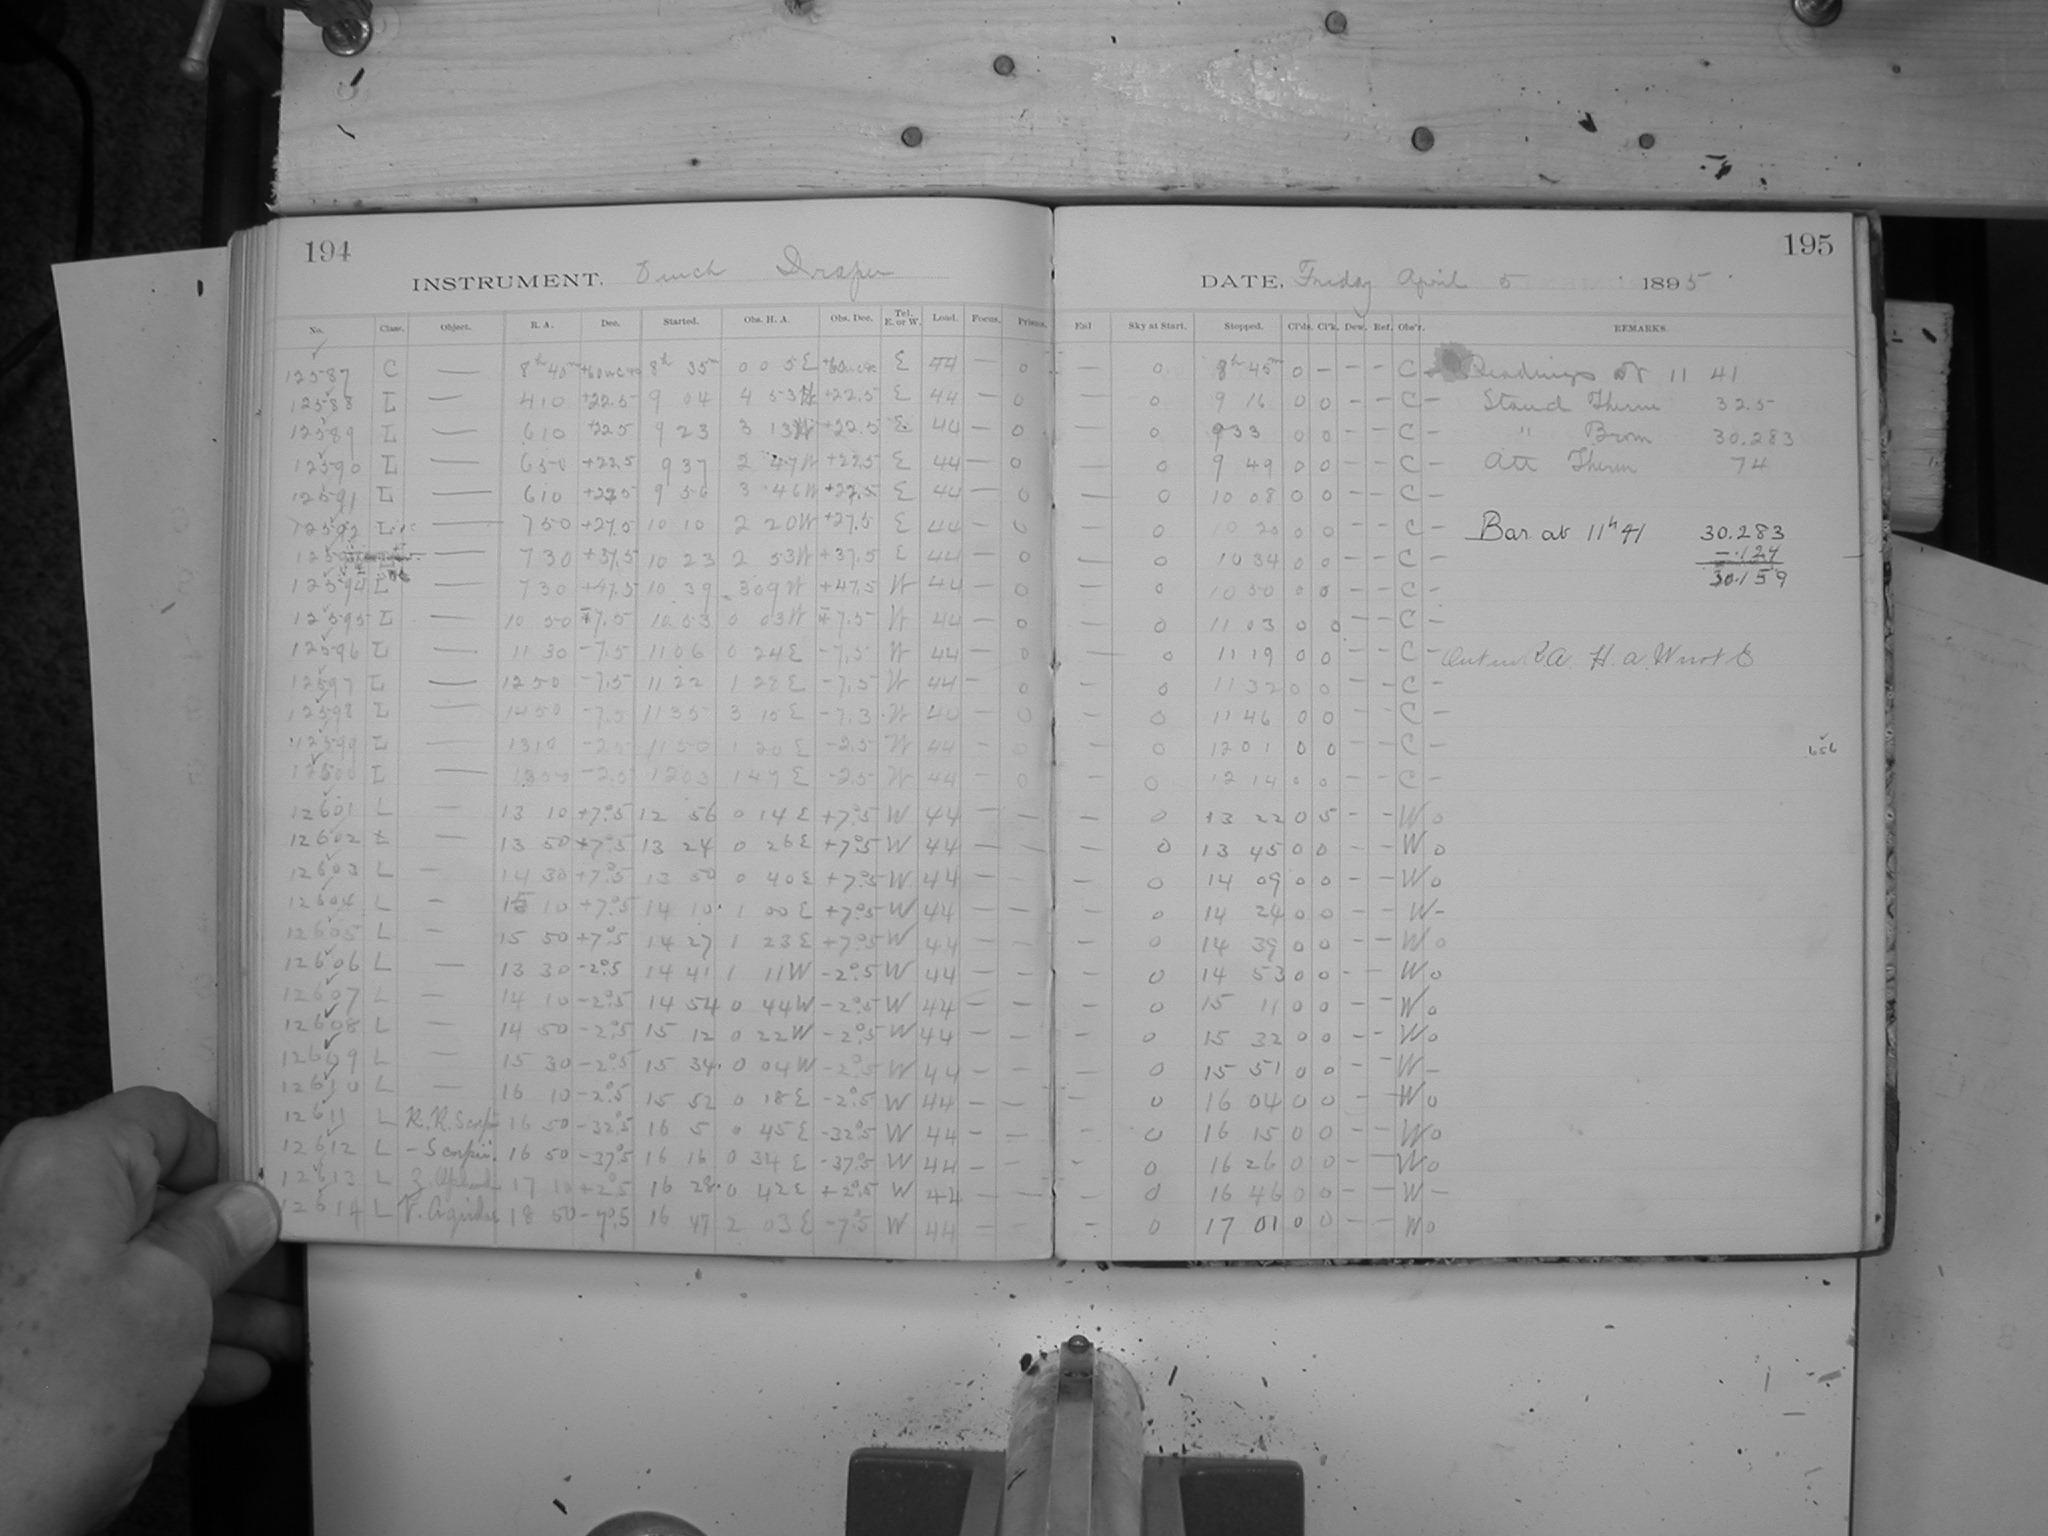 194
INSTRUMENT. 8 inch Draper
No. Class. Object. R. A. Dec. Started. Obs. H. A. Obs. Dec. Tel. E. or W. Load. Focus. Prisms.
12587 C — 8h 40m 8h 35m 0 05 E E 44 — 0
12588 I — 4 10 +22.5 9 04 4 53 W +22.5 E 44 — 0
12589 I — 6 10 +22.5 9 23 3 13 W +22.5 E 44 — 0
12590 I — 6 50 +22.5 9 37 2 47 W +22.5 E 44 — 0
12591 I — 6 10 +27.5 9 56 3 46 W +27.5 E 44 — 0
12592 I — 7 50 +27.5 10 10 2 20 W +27.5 E 44 — 0
— 7 30 +37.5 10 23 2 53 W +37.5 E 44 — 0
12594 I — 7 30 +47.5 10 39 3 09 W +47.5 W 44 — 0
12595 I — 10 50 7.5 10 53 0 03 W 7.5 W 44 — 0
12596 I — 11 30 -7.5 11 06 0 24 E -7.5 W 44 — 0
12597 I — 12 50 -7.5 11 22 1 28 E -7.5 W 44 — 0
12598 I — 14 50 -7.5 11 35 3 15 E W — 0
12599 I — 13 10 -2.5 11 50 1 20 E -2.5 W 44 — 0
I — -2.5 12 03 1 47 E -2.5 W 44 — 0
12601 L — 13 10 +7°.5 12 56 0 14 E +7°.5 W 44 — —
12602 L — 13 50 +7°.5 13 24 0 26 E +7°.5 W 44 — —
12603 L — 14 30 +7°.5 13 50 0 40 E +7°.5 W 44 — —
12604 L — 15 10 +7°.5 14 10 1 00 E +7°.5 W 44 — —
12605 L — 15 50 +7°.5 14 27 1 23 E +7°.5 W 44 — —
12606 L — 13 30 -2°.5 14 41 1 11 W -2°.5 W 44 — —
12607 L — 14 10 -2°.5 14 54 0 44 W -2°.5 W 44 — —
12608 L — 14 50 -2°.5 15 12 0 22 W -2°.5 W 44 — —
12609 L — 15 30 -2°.5 15 34 0 04 W -2°.5 W 44 — —
12610 L — 16 10 -2°.5 15 52 0 18 E -2°.5 W 44 — —
12611 L R. R. Scorpii 16 50 -32°.5 16 5 0 45 E -32°.5 W 44 — —
12612 L - Scorpii 16 50 -37°.5 16 16 0 34 E -37°.5 W 44 — —
12613 L 17 10 +2°.5 16 28 0 42 E +2°.5 W 44 — —
12614 L V. Aquilae 18 50 -7°.5 16 47 2 03 E -7°.5 W 44 — —
195
DATE, Friday April 5 1895
Exl Sky at Start. Stopped. Cl'ds. Cl'k. Dew. Ref. Obs'r. REMARKS.
— 0 8h 45m 0 – – – C – Readings at 11 41
— 0 9 16 0 0 – – C – Stand Therm 32.5
— 0 9 33 0 0 – – C – " Brom 30.283
— 0 9 49 0 0 – – C – Att Therm 74
— 0 10 08 0 0 – – C –
— 0 10 20 0 0 – – C – Bar. at 11h 41 30.283
— 0 10 34 0 0 – – C – -.124
— 0 10 50 0 0 – – C – 30.159
— 0 11 03 0 0 – – C –
— 0 11 19 0 0 – – C –
— 0 11 32 0 0 – – C –
— 0 11 46 0 0 – – C –
— 0 12 01 0 0 – – C – 656
— 0 12 14 0 0 – – C –
– 0 13 22 0 5 – – W 0
– 0 13 45 0 0 – – W 0
– 0 14 09 0 0 – – W 0
– 0 14 24 0 0 – – W –
– 0 14 39 0 0 – – W 0
– 0 14 53 0 0 – – W 0
– 0 15 11 0 0 – – W 0
– 0 15 32 0 0 – – W 0
– 0 15 51 0 0 – – W –
– 0 16 04 0 0 – – W 0
– 0 16 15 0 0 – – W 0
– 0 16 26 0 0 – – W 0
– 0 16 46 0 0 – – W –
– 0 17 01 0 0 – – W 0